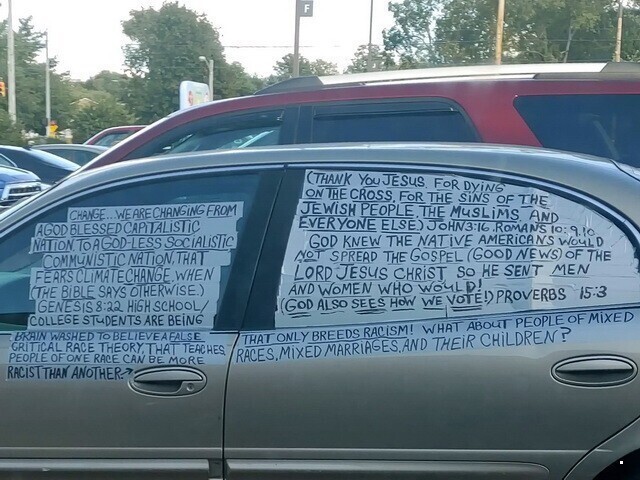 F
CHANGE... WE ARE CHANGING FROM
A GOD BLESSED CAPITALISTIC
NATION TO A GOD-LESS SOCIALISTIC
COMMUNISTIC NATION, THAT
FEARS CLIMATE CHANGE, WHEN
(THE BIBLE SAYS OTHERWISE.)
GENESIS 8:22 HIGH SCHOOL/
COLLEGE STUDENTS ARE BEING
BRAIN WASHED TO BELIEVE A FALSE
CRITICAL RACE THEORY, THAT TEACHES
PEOPLE OF ONE RACE CAN BE MORE
RACIST THAN ANOTHER?
(THANK YOU JESUS, FOR DYING
ON THE CROSS, FOR THE SINS OF THE
JEWISH PEOPLE, THE MUSLIMS, AND
EVERYONE ELSE) JOHN 3:16, ROMANS 10:9,10
GOD KNEW THE NATIVE AMERICANS WOULD
NOT SPREAD THE GOSPEL (GOOD NEWS) OF THE
LORD JESUS CHRIST SO HE SENT MEN
AND WOMEN WHO WOULD!
(GOD ALSO SEES HOW WE VOTE!) PROVERBS 15:3
THAT ONLY BREEDS RACISM! WHAT ABOUT PEOPLE OF MIXED
RACES, MIXED MARRIAGES, AND THEIR CHILDREN?